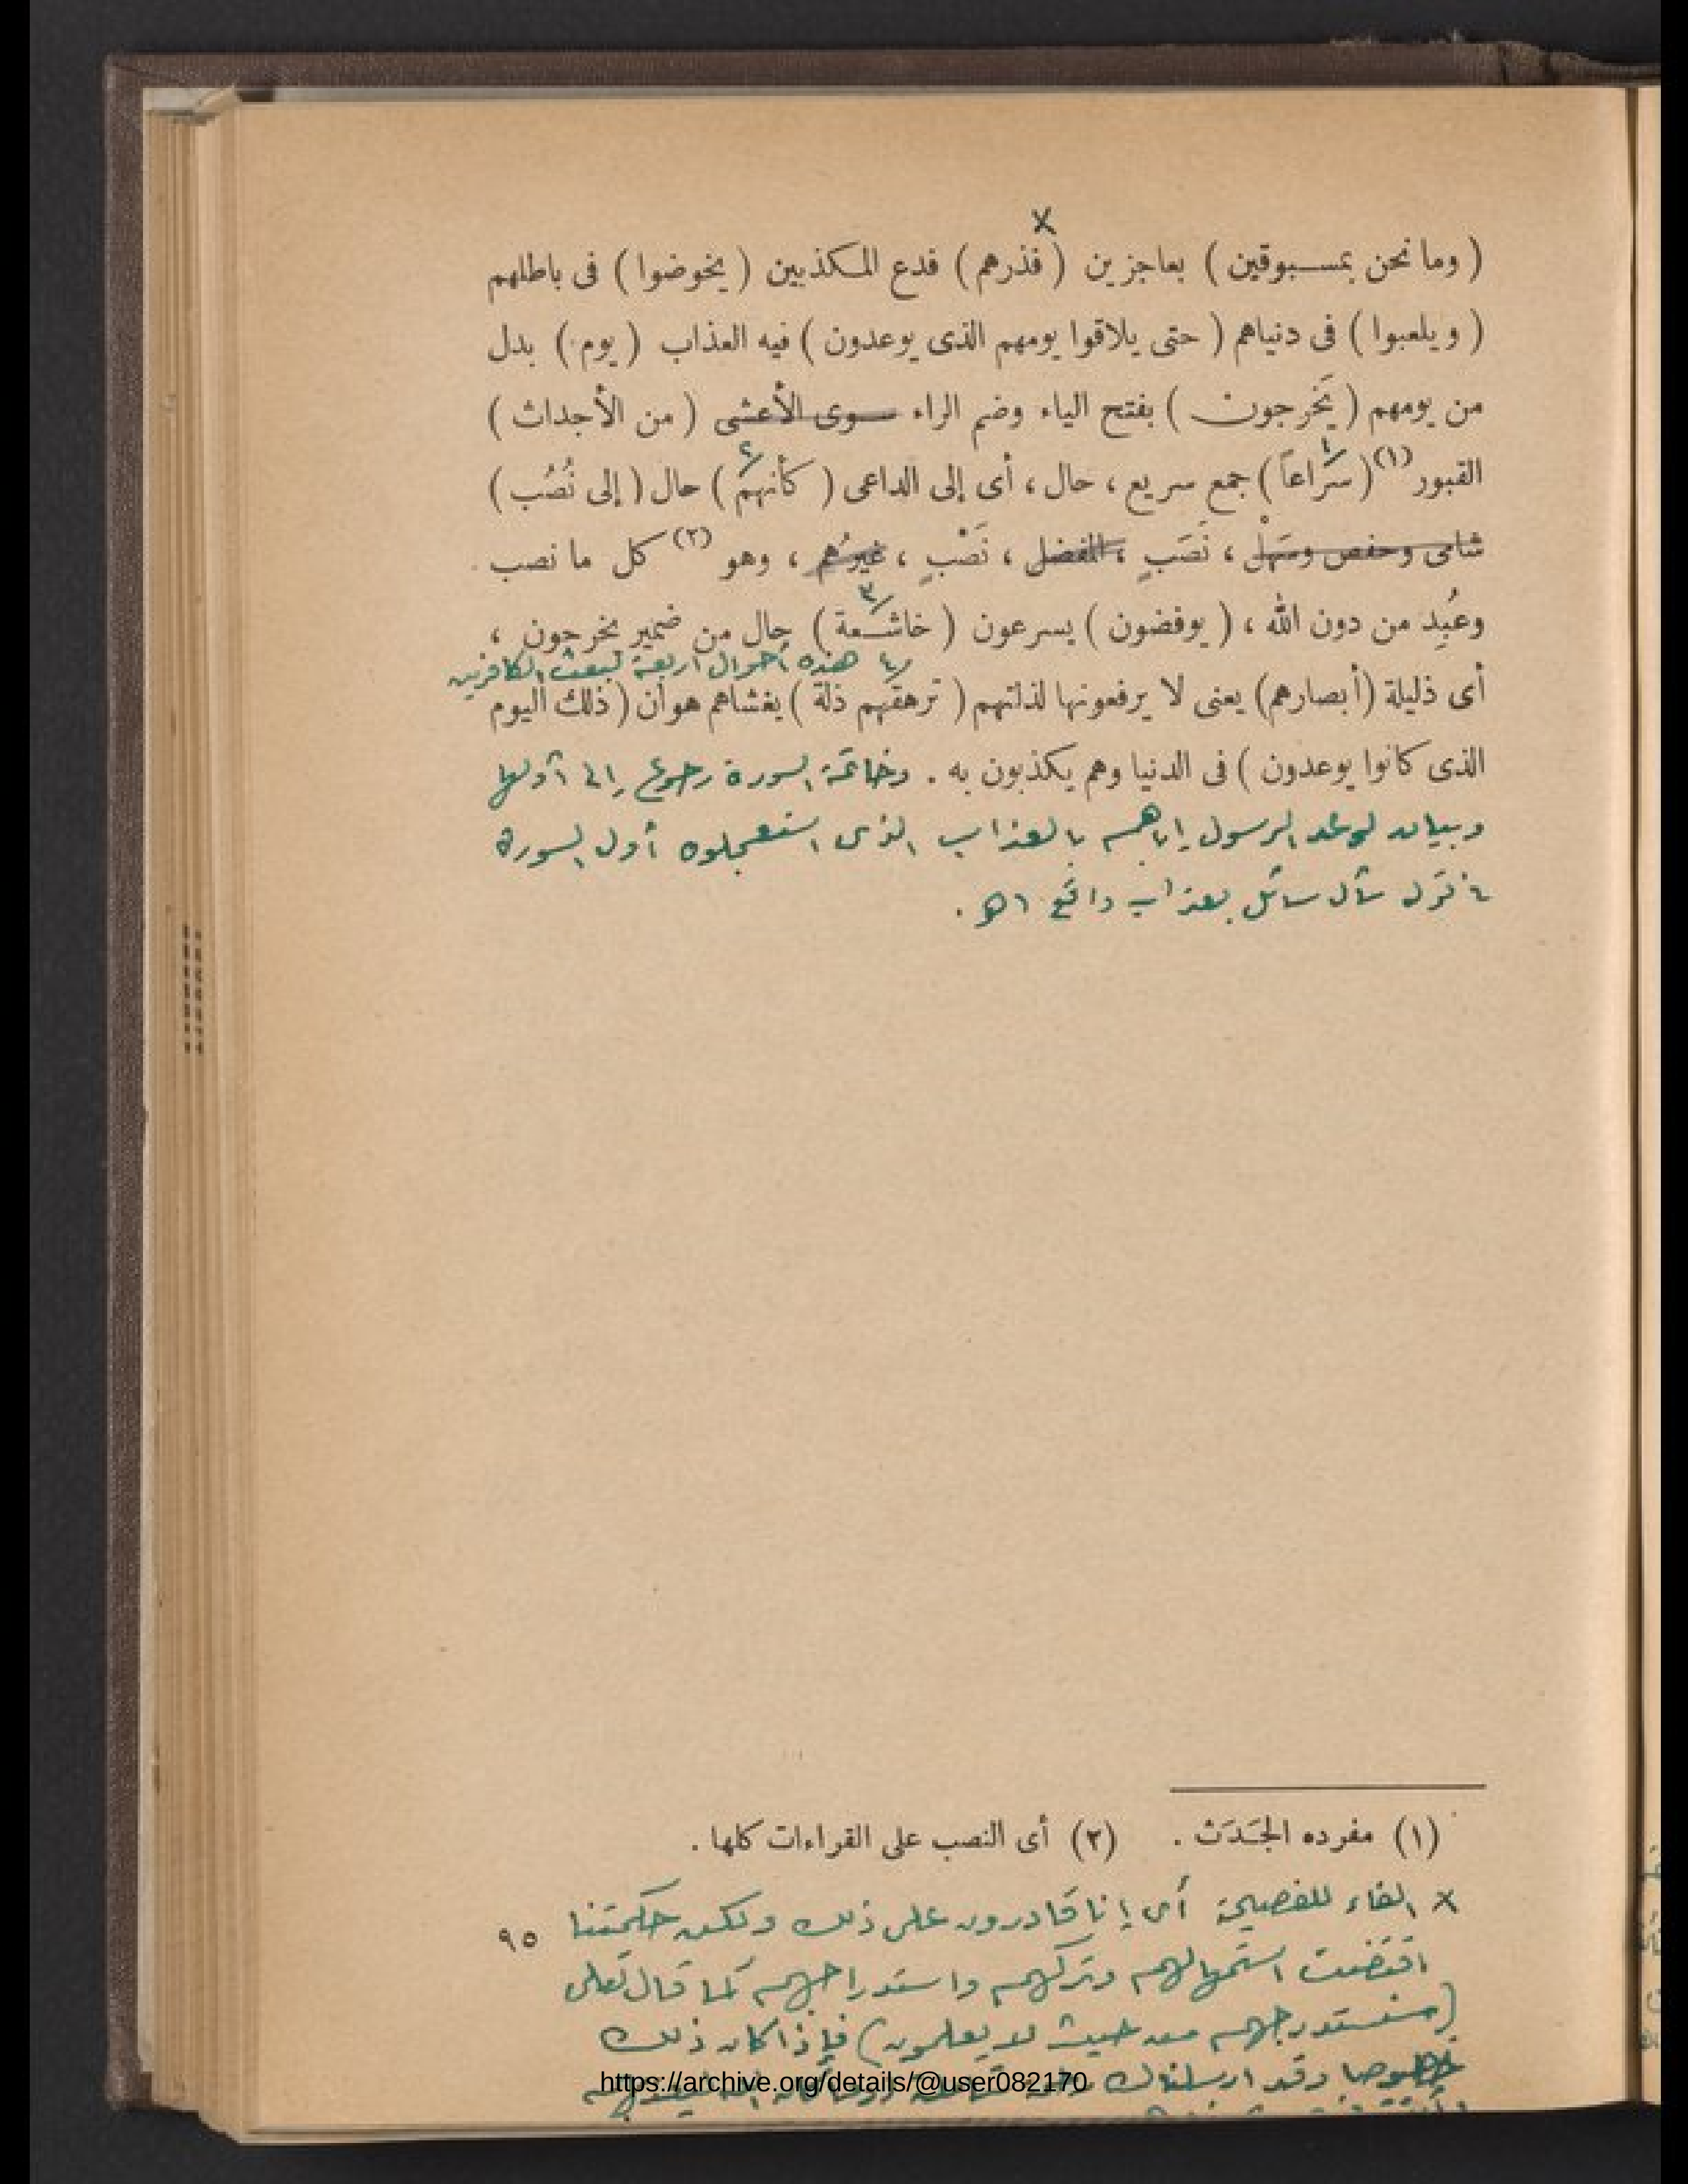 ( وما نحن بمسبوقين ) بعاجزين ( فذرهم ) فدع المكذبين ( يخوضوا ) فى باطلهم
( ويلعبوا ) فى دنياهم ( حتى يلاقوا يومهم الذى يوعدون ) فيه العذاب ( يوم ) بدل
من يومهم ( يَخرجون ) بفتح الياء وضم الراء سوى الأعشى ( من الأجداث )
القبور (١) ( سراعاً ) جمع سريع ، حال ، أى إلى الداعى ( كأنهم ) حال ( إلى نُصُب )
شامى وحفص وسهل ، نَصَبٍ ، المفضل ، نَصْبٍ ، غيرُهم ، وهو (٢) كل ما نصب
وعُبِد من دون الله ، ( يوفضون ) يسرعون ( خاشعة ) حال من ضمير يخرجون ،
هذه أحوال أربعة لبعث الكافرين
أى ذليلة ( أبصارهم ) يعنى لا يرفعونها لذلتهم ( ترهقهم ذلة ) يغشاهم هوان ( ذلك اليوم
الذى كانوا يوعدون ) فى الدنيا وهم يكذبون به . وخاتمة السورة رجوع إلى أولها
وبيان لوعد الرسول إياهم بالعذاب الذى استعجلوه أول السورة
سأل سائل بعذاب واقع اهـ .
(١) مفرده الجَدَث . (٢) أى النصب على القراءات كلها .
× الفاء للفصيحة أى إنا قادرون على ذلك ولكن حكمتنا
٩٥
اقتضت استمهالهم وتركهم واستدراجهم كما قال تعالى
( سنستدرجهم من حيث لا يعلمون ) فإذا كان ذلك
وقد ارسلناك
https://archive.org/details/@user082170